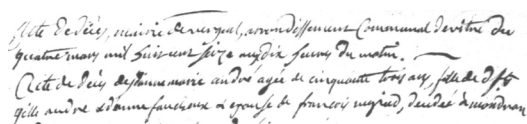 Acte de décès, mairie de neryal, arrondissement Communal de vitré du
quatre mars mil huit cent seize aux dix heures du matin.
Acte de décès de jeanne marie andré agée de cinquante trois ans, fille de
gille andré & de anne faucheux & epouse de francois, décédée